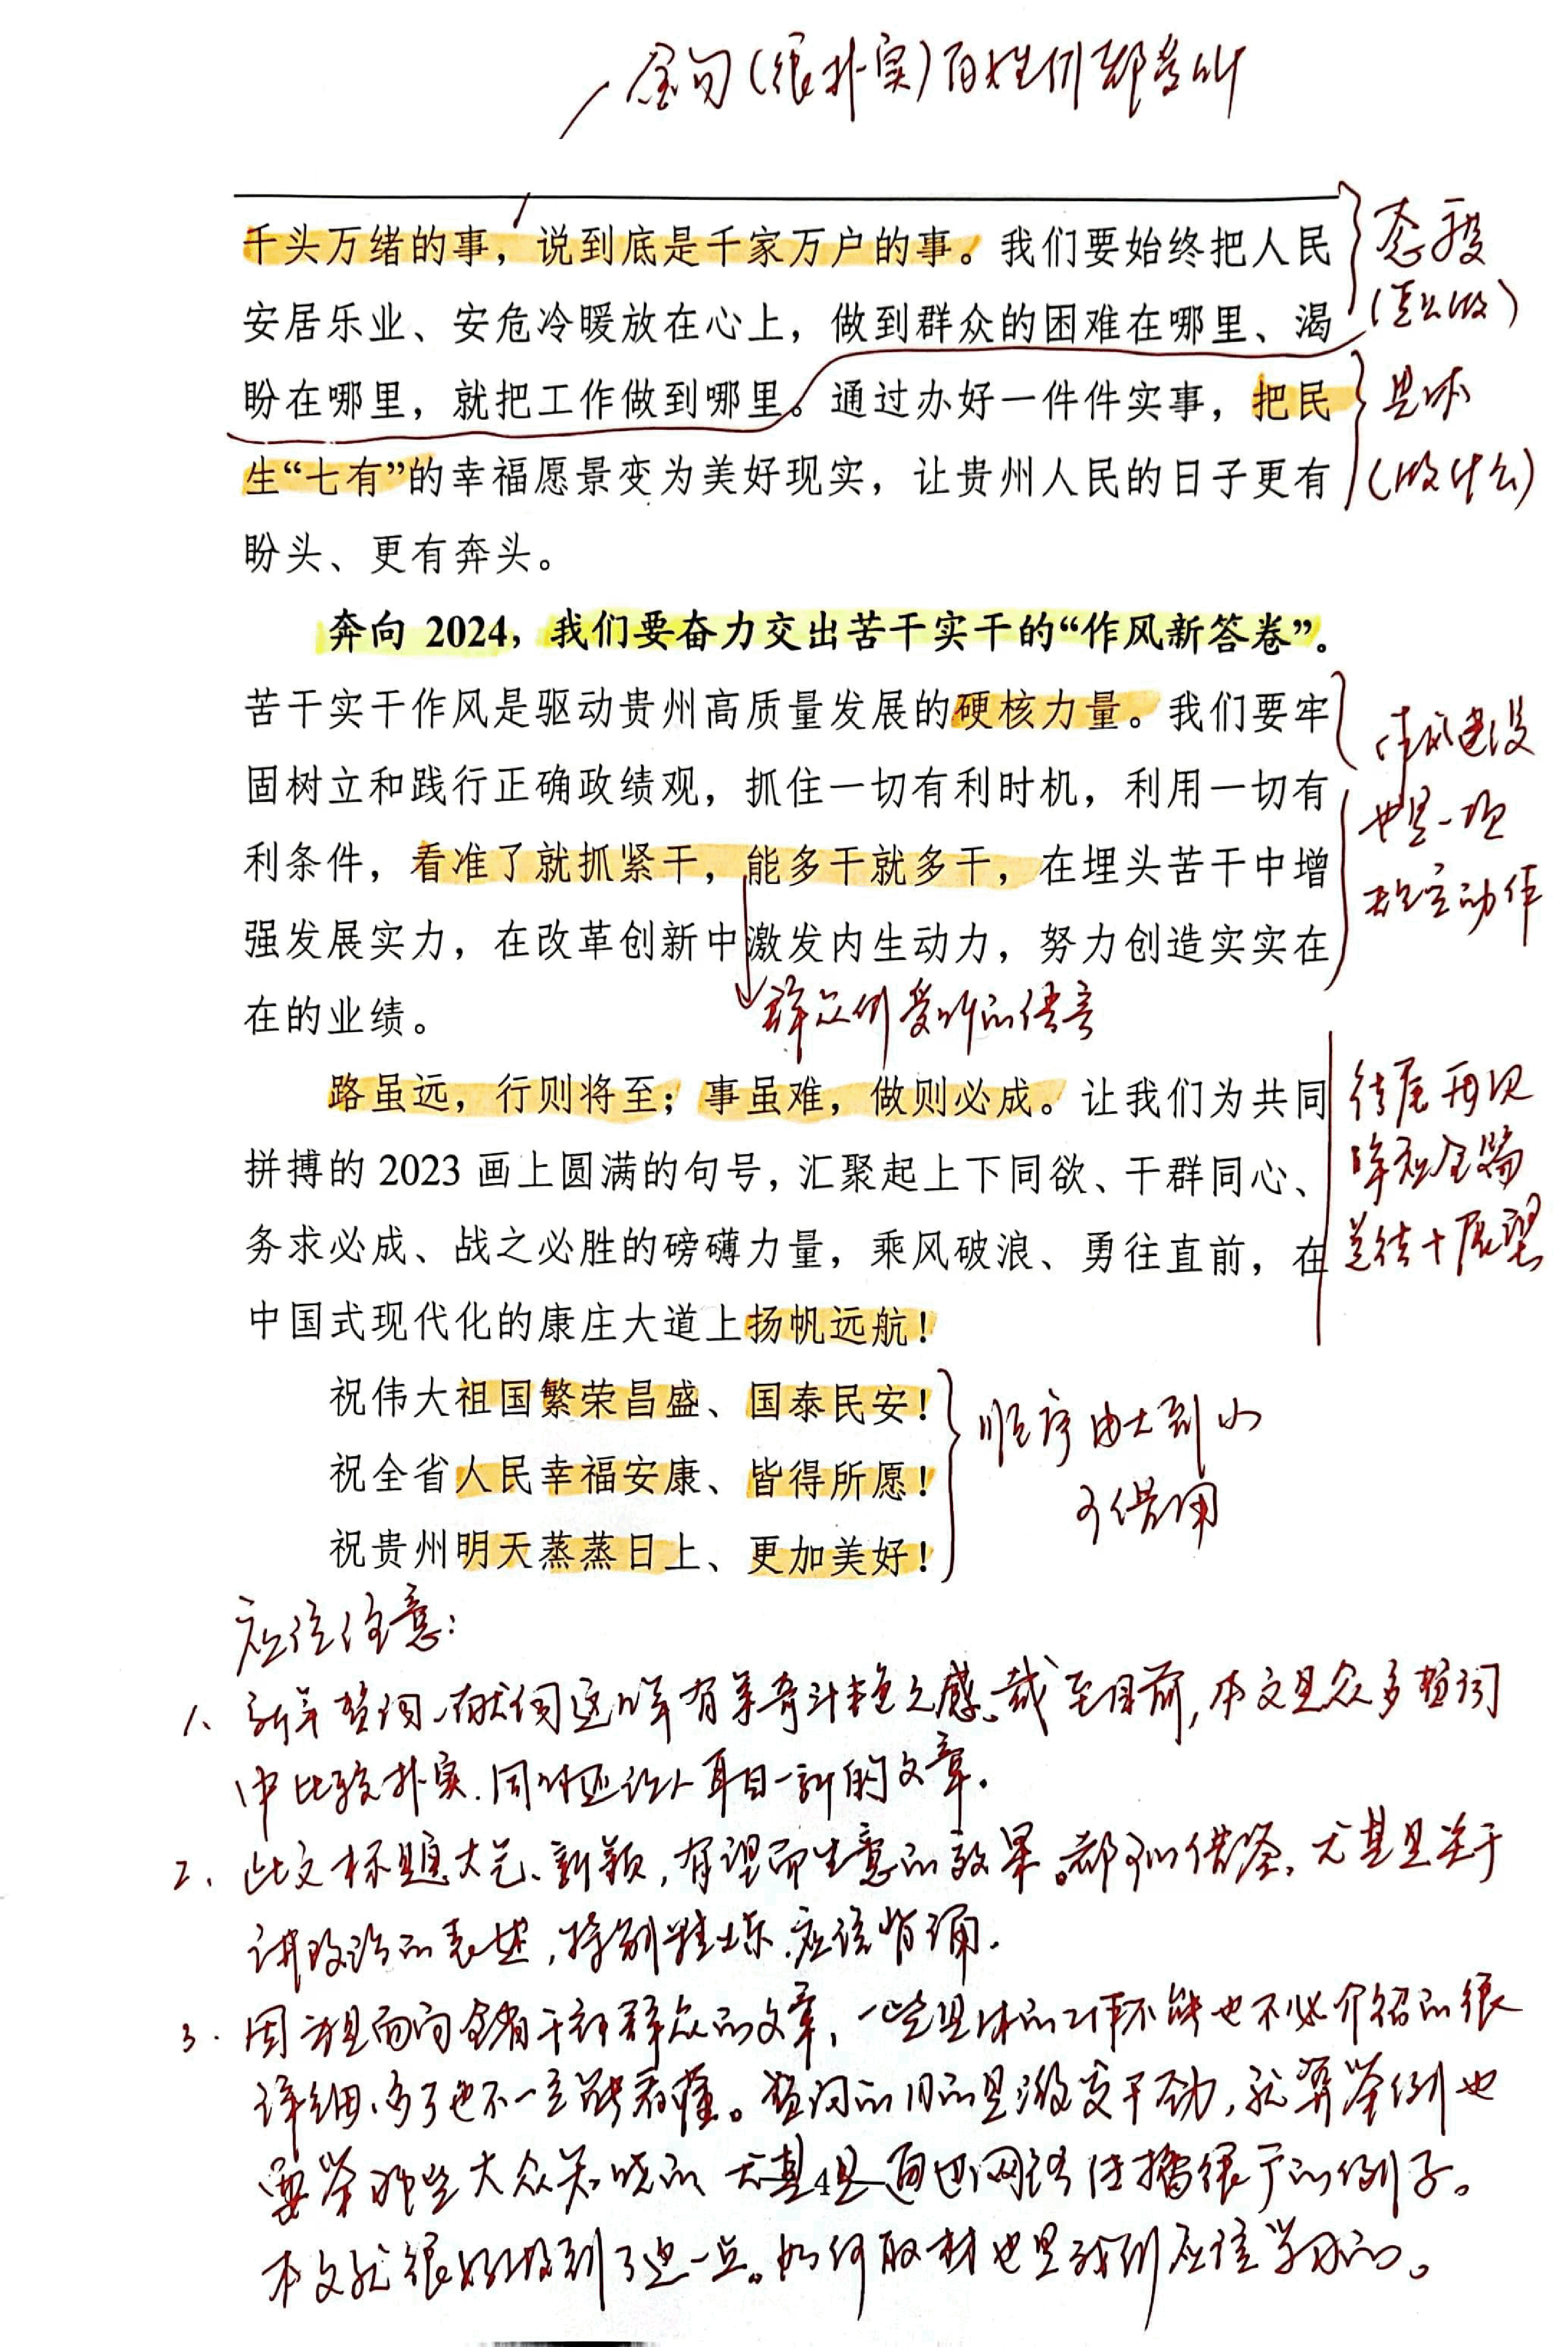 金句(很朴实)百姓们都爱听
千头万绪的事，说到底是千家万户的事。我们要始终把人民
安居乐业、安危冷暖放在心上，做到群众的困难在哪里、渴
盼在哪里，就把工作做到哪里。通过办好一件件实事，把民
生“七有”的幸福愿景变为美好现实，让贵州人民的日子更有
盼头、更有奔头。
态度
(怎么做)
具体
(做什么)
奔向 2024，我们要奋力交出苦干实干的“作风新答卷”。
苦干实干作风是驱动贵州高质量发展的硬核力量。我们要牢
固树立和践行正确政绩观，抓住一切有利时机，利用一切有
利条件，看准了就抓紧干，能多干就多干，在埋头苦干中增
强发展实力，在改革创新中激发内生动力，努力创造实实在
在的业绩。
作风建设
也是一项
规定动作
群众们爱听的语言
路虽远，行则将至；事虽难，做则必成。让我们为共同
拼搏的 2023 画上圆满的句号，汇聚起上下同欲、干群同心、
务求必成、战之必胜的磅礴力量，乘风破浪、勇往直前，在
中国式现代化的康庄大道上扬帆远航！
结尾再次
全篇
总结+展望
祝伟大祖国繁荣昌盛、国泰民安！
祝全省人民幸福安康、皆得所愿！
祝贵州明天蒸蒸日上、更加美好！
顺序由大到小
可借用
应该注意：
1、新年贺词、献词这几年有争奇斗艳之感。截至目前，本文是众多贺词
中比较朴实.同时还让人耳目一新的文章.
2、此文标题大气、新颖，有望而生意的效果。都可以借鉴，尤其是关于
讲政治的表述，特别精炼，应该背诵.
3.因为是面向全省干部群众的文章，一些具体的工作不能也不必介绍的很
详细、多了也不一定能看懂。贺词的目的是激发干劲，就算举例也
要举那些大众知晓的 尤其是通过网络传播很广的例子。
4
本文就很好做到了这一点。如何取材也是我们应该学习的。